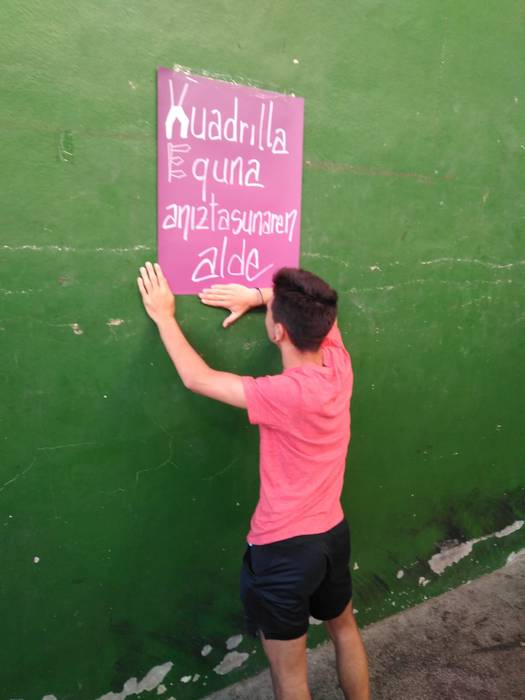 Kuadrilla
Equna
aniztasunaren
alde